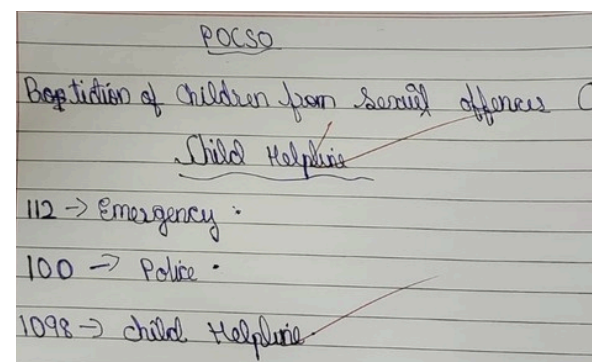 POCSO
Proptiction of Children from Sexual offences (
Child Helpline
112 → Emergency .
100 → Police .
1098 → child Helpline